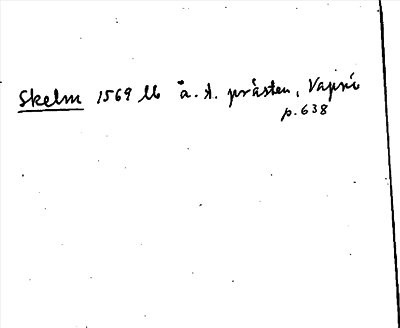 Skelm 1569 16 ä. t. prästen, Vapri
p. 638